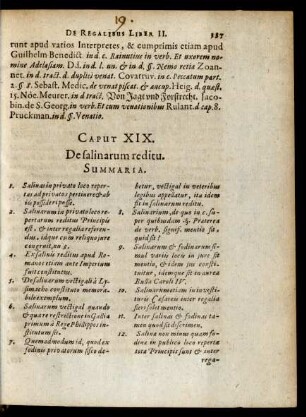 19.
DE REGALIBUS LIBER II. 187
runt apud varios Interpretes, & cumprimis etiam apud
Guilhelm Benedict in d. c. Rainutius in verb. Et uxorem no-
mine Adelasiam. Dd. in d. l. un. & in d. §. Nemo retia Zoan-
net. in d. tract. d. duplici venat. Covarruv. in c. Peccatum part.
2. §. 8. Sebast. Medic. de venat piscat. & aucup. Heig. d. quæst.
15. Nóe. Meurer. in d. tract. Von Jagt und Forstrecht. Jaco-
bin. de S. Georg. in verb. Et cum venationibus Ruland. d cap. 8.
Pruckman. in d. §. Venatio.
CAPUT XIX.
De salinarum reditu.
SUMMARIA.
1. Salina in privato loco reper-
ta ad privatos pertinere & ab
iis possideri posse.
2. Salinarum in privato loco re-
pertarum reditus Principis
est, & inter regalia referen-
dus, idque cum reliquo jure
congruit, nu. 3.
4. Ex salinis reditus apud Ro-
manos etiam ante Imperium
fuit constitutus.
5. De salinarum vectigali à Ly-
simacho constituto memora-
bile exemplum.
6. Salinarum vectigal quando
& quare restrictione in Gallia
primum à Rege Philippo in-
stitutum sit.
7. Quemadmodum id, quod ex
fodinis privatorum fisco de-
betur, vectigal in veteribus
legibus appelatur, ita idem
sit in salinarum reditu.
8. Salinarium, de quo in c. su-
per quibusdam & Præterea
de verb. signif. mentio sit
quid sit?
9. Salinarum & fodinarum si-
mul variis locis in jure sit
mentio, & quod in unis con-
stituitur, idem que sit in aurea
Bulla Caroli IV.
10. Salinis nominatim in con-
stitut. Cæsareis inter regalia
fieri solet mentio.
11. Inter salinas & fodinas ta-
men quod sit discrimen.
12. Salina non minus quam fo-
dina in publico loco reperta
tota Principis sunt & inter
rega-